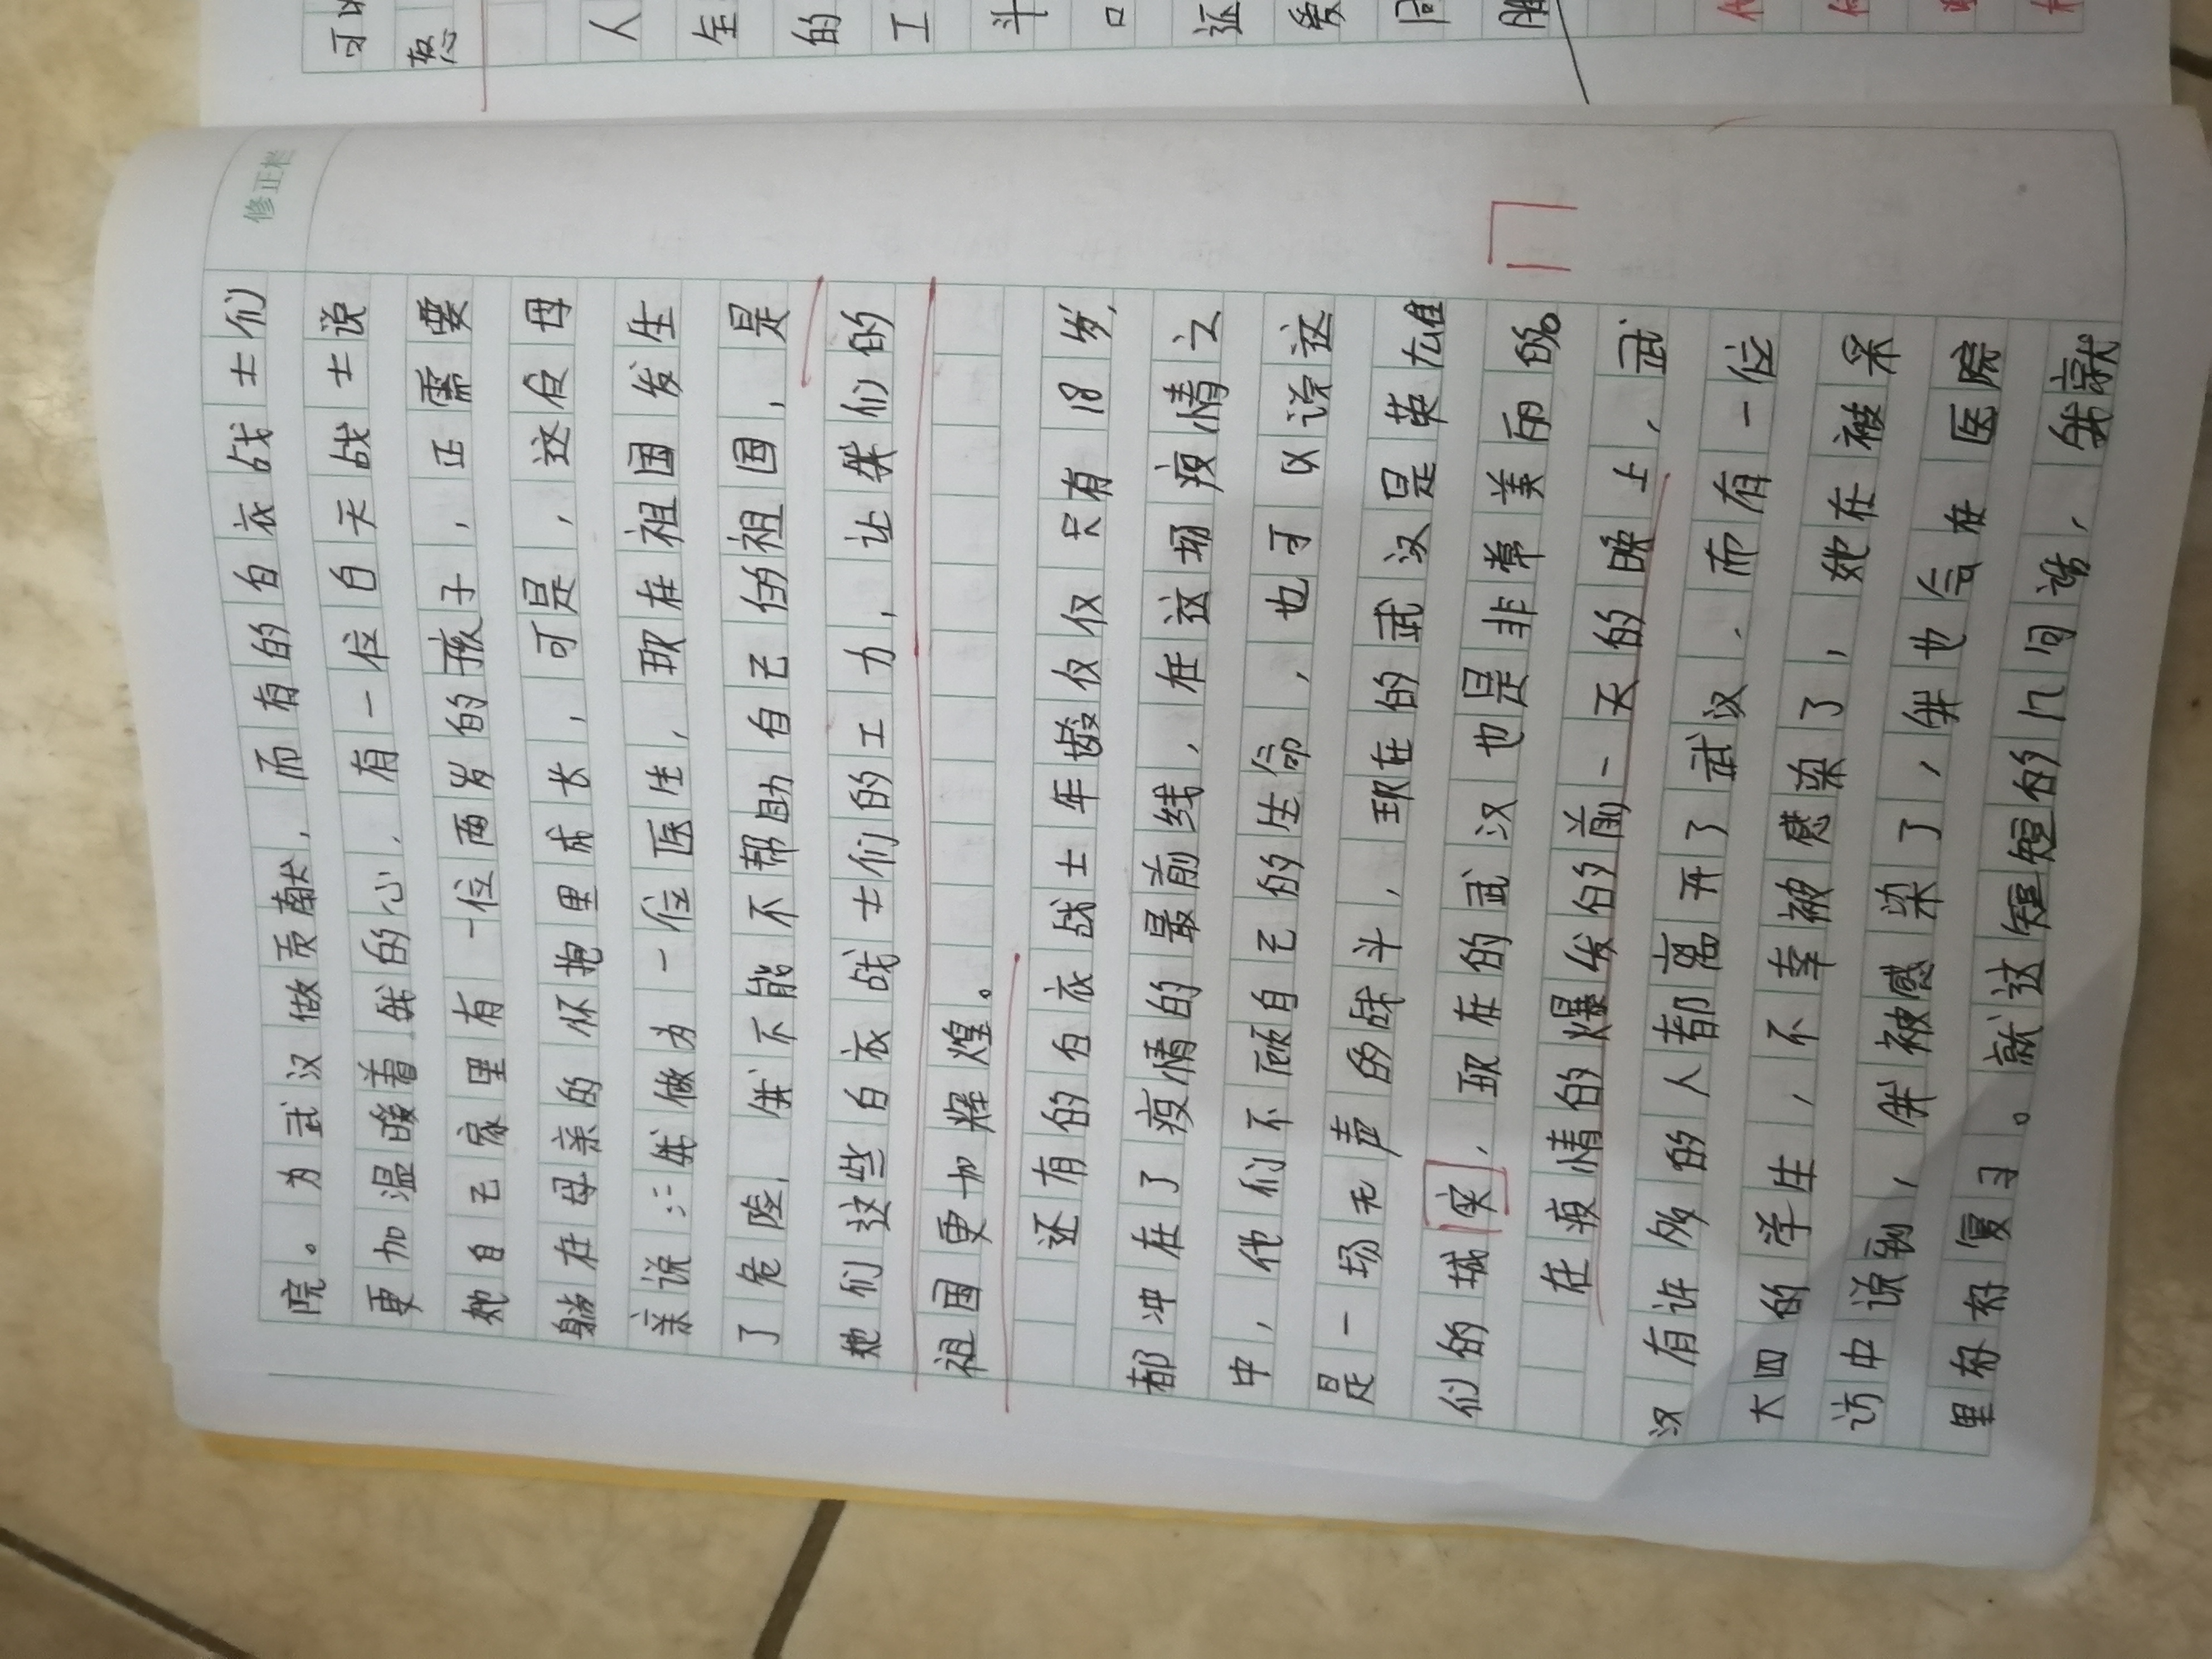 修正栏
院。为武汉做贡献，而有的白衣战士们
更加温暖着我的心，有一位白天战士说
她自己家里有一位两岁的孩子，正需要
躺在母亲的怀抱里成长，可是，这位母
亲说：：我做为一位医生，现在祖国发生
了危险，我不能不帮助自己的祖国，是
她们这些白衣战士们的工力，让我们的
祖国更加辉煌。
还有的白衣战士年龄仅仅只有18岁，
都冲在了疫情的最前线，在这场疫情之
中，他们不顾自己的生命，也可以说这
是一场无声的战斗，现在的武汉是英雄
们的城实，现在的武汉也是非常美丽的。
在疫情的爆发的前一天的晚上，武
汉有许多的人都离开了武汉，而有一位
大四的学生，不幸被感染了，她在被采
访中说到，我被感染了，我也会在医院
里好好复习。就这短短的几句话，我就